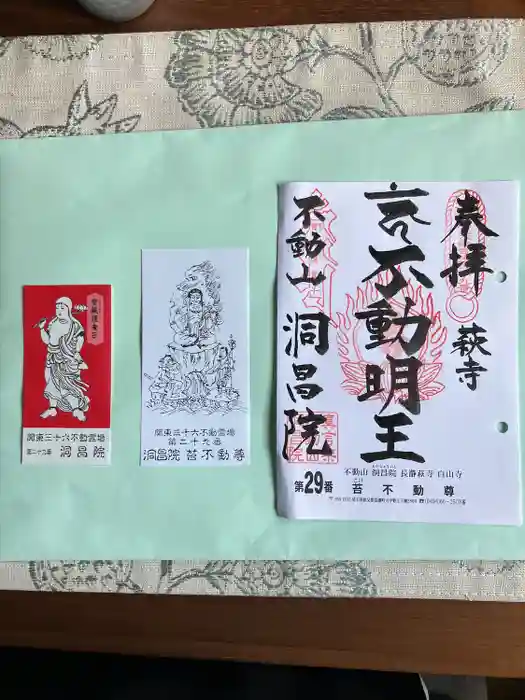 関東三十六不動霊場
第二十九番 洞昌院
関東三十六不動霊場
第二十九番
洞昌院 苔不動尊
奉拝
萩寺
不動明王
不動山 洞昌院
不動山 洞昌院 長瀞萩寺 白山寺
第29番 苔不動尊